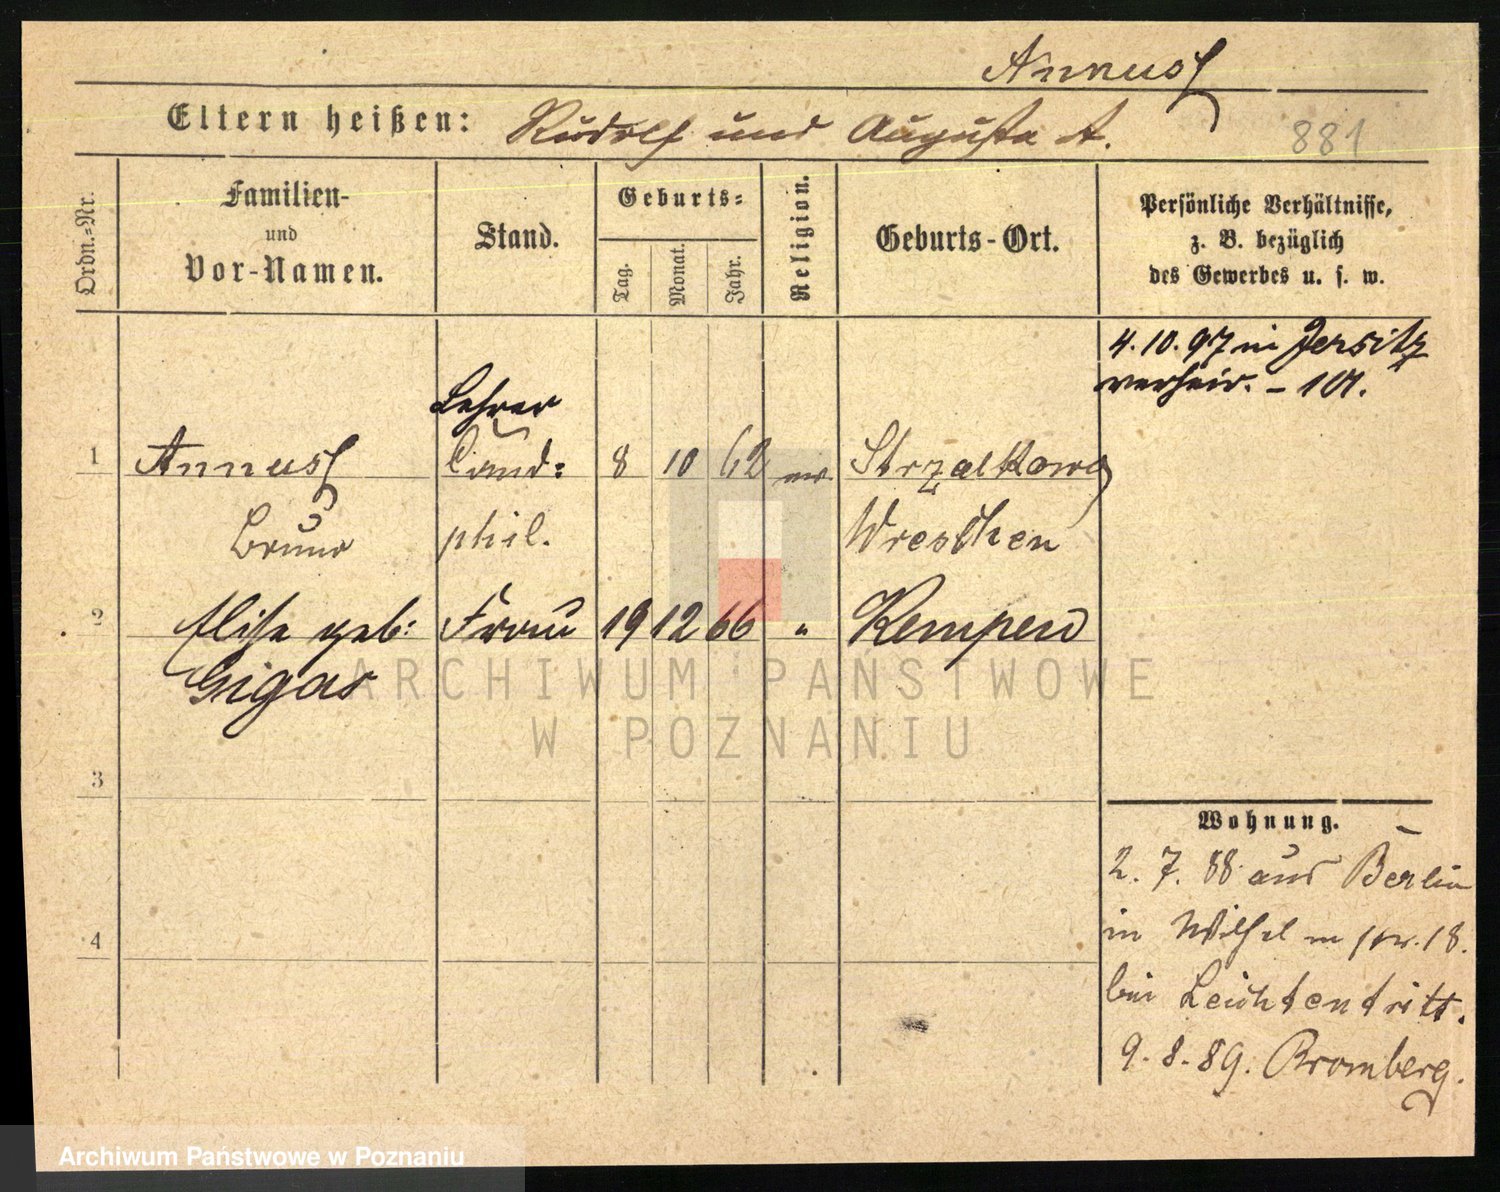 Annusch
Eltern heißen: Rudolf und Augusta A.
881
Ordn.=Nr.
Familien-
und
Vor-Namen.
Stand.
Geburts=
Tag.
Monat.
Jahr.
Religion.
Geburts-Ort.
Persönliche Verhältnisse,
z. B. bezüglich
des Gewerbes u. s. w.
4.10.97 in Jersitz
verheir. -
Lehrer
1 Annusch Cand= 8 10 62 ev. Strzalkowo
Bruno phil. Wreschen
2 Elise geb: Frau 19 12 66 " Kempen
Gigas
ARCHIWUM PAŃSTWOWE
W POZNANIU
3
Wohnung.
2. 7. 88 aus Berlin
in 18.
4
bei Leichtentritt.
9. 8. 89. Bromberg.
Archiwum Państwowe w Poznaniu